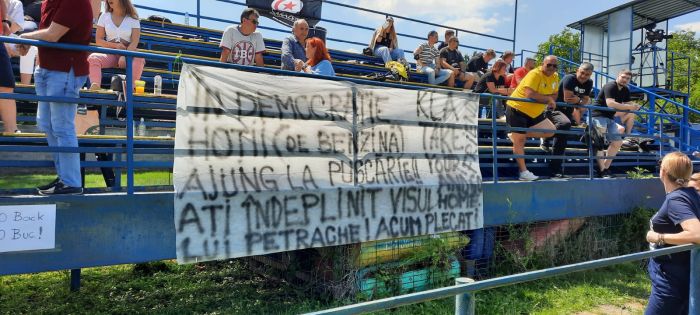 IN DEMOCRAȚIE
HOȚII (DE BENZINA) TAKE
AJUNG LA PUȘCĂRIE! YOUR
AȚI ÎNDEPLINIT VISUL HOME
LUI PETRACHE! ACUM PLECAȚI!
O Back
O Buc!